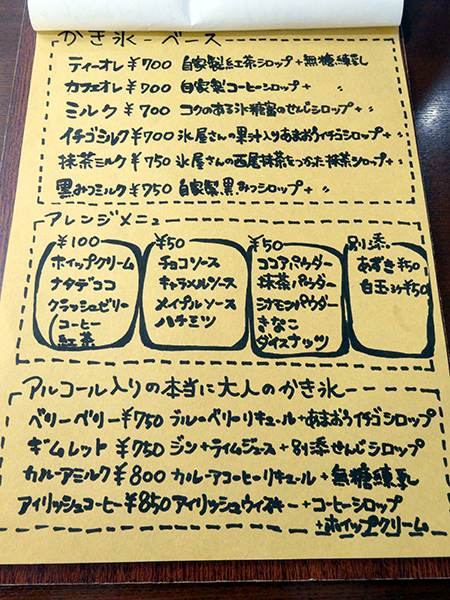 かき氷-ベース
ティーオレ ¥700 自家製紅茶シロップ+無糖練乳
カフェオレ ¥700 自家製コーヒーシロップ+ 〃
ミルク ¥700 コクのある氷糖のせんじシロップ+ 〃
イチゴミルク ¥700 氷屋さんの果汁入りあまおうイチゴシロップ+ 〃
抹茶ミルク ¥750 氷屋さんの西尾抹茶をつかった抹茶シロップ+ 〃
黒みつミルク ¥750 自家製黒みつシロップ+ 〃
アレンジメニュー
¥100
ホイップクリーム
ナタデココ
クラッシュゼリー
(コーヒー
紅茶
¥50
チョコソース
キャラメルソース
メイプルソース
ハチミツ
¥50
ココアパウダー
抹茶パウダー
シナモンパウダー
きなこ
ダイスナッツ
別添
あずき ¥50
白玉3ヶ ¥50
アルコール入りの本当に大人のかき氷
ベリーベリー ¥750 ブルーベリーリキュール+あまおうイチゴシロップ
ギムレット ¥750 ジン+ライムジュース+別添せんじシロップ
カルーアミルク ¥800 カルーアコーヒーリキュール+無糖練乳
アイリッシュコーヒー ¥850 アイリッシュウイスキー+コーヒーシロップ
+ホイップクリーム